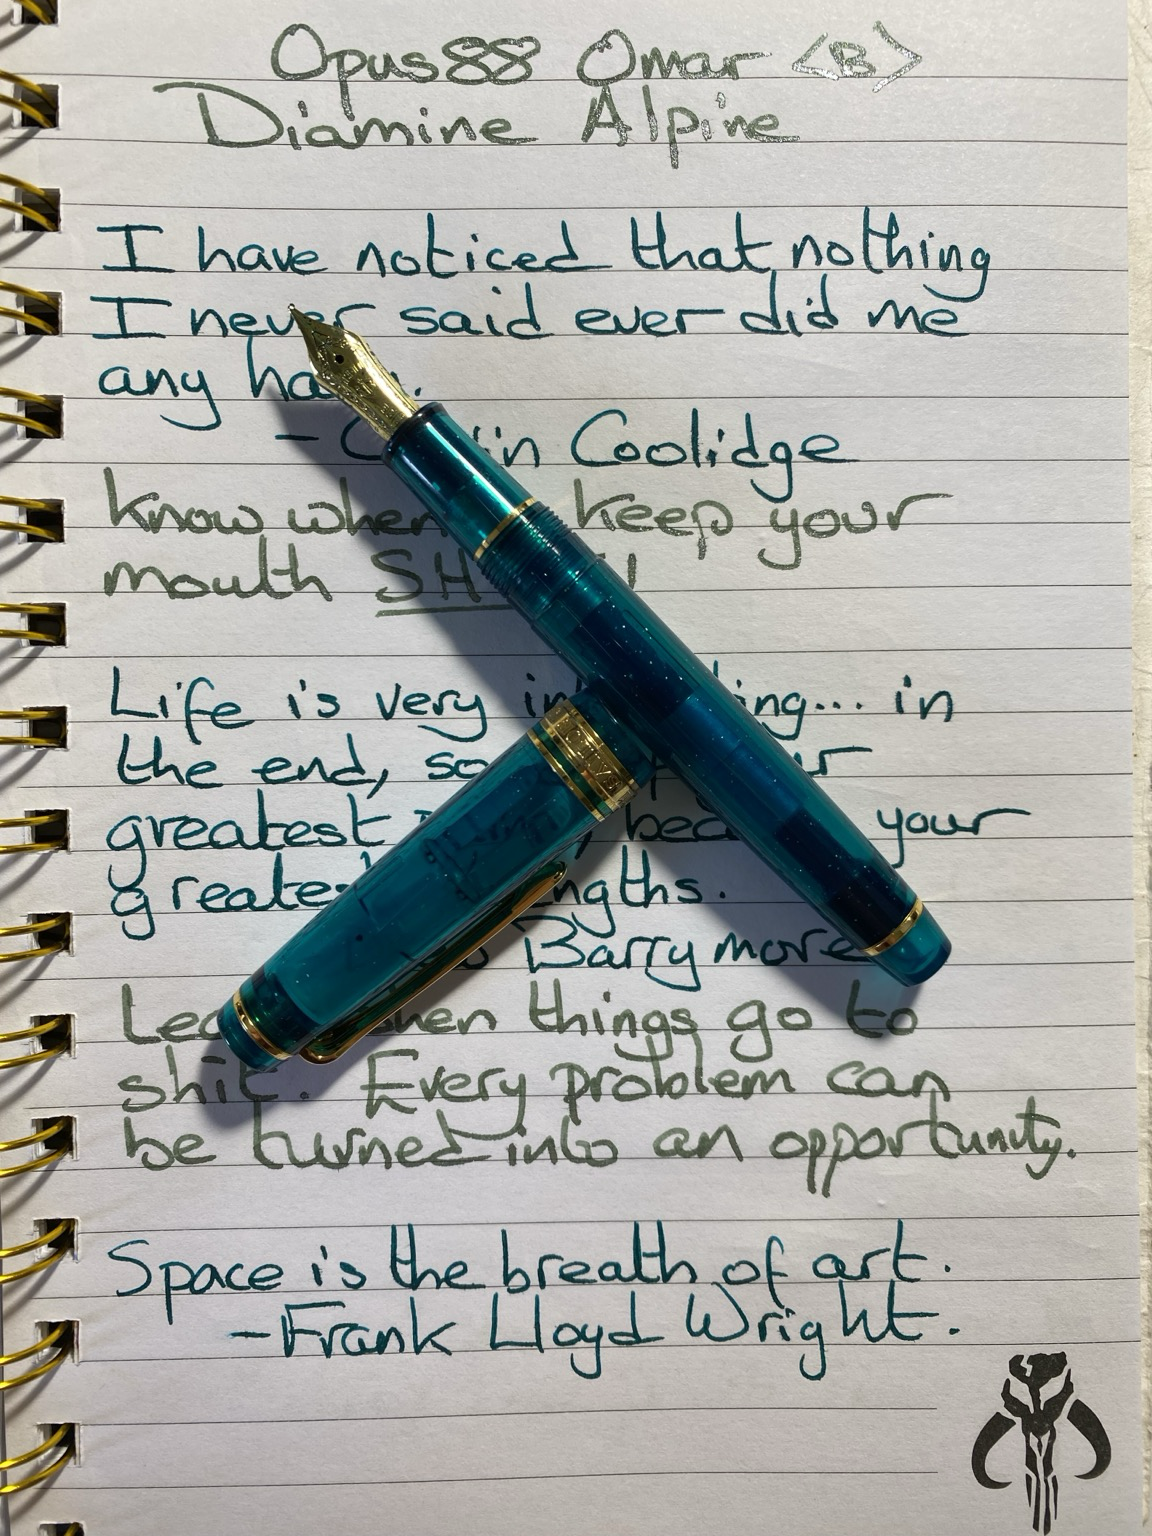 Opus88 Omar <B>
Diamine Alpine
I have noticed that nothing
I never said ever did me
any
- Coolidge
Know when keep your
mouth
Life is very in
the end,
greatest your
Barrymore
when things go to
shit. Every problem can
be turned into an opportunity.
Space is the breath of art.
-Frank Lloyd Wright.